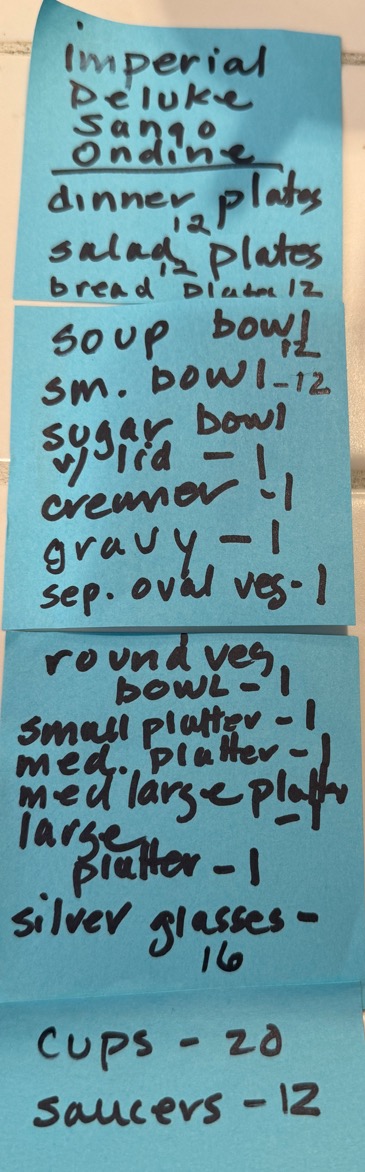 imperial
Deluke
Sango
Ondine
dinner plates
12
salad plates
12
bread plates 12
soup bowl
12
sm. bowl - 12
sugar bowl
w/ lid - 1
creamer - 1
gravy - 1
sep. oval veg - 1
round veg
bowl - 1
small platter - 1
med. platter - 1
med large platter
- 1
large
platter - 1
silver glasses -
16
cups - 20
saucers - 12